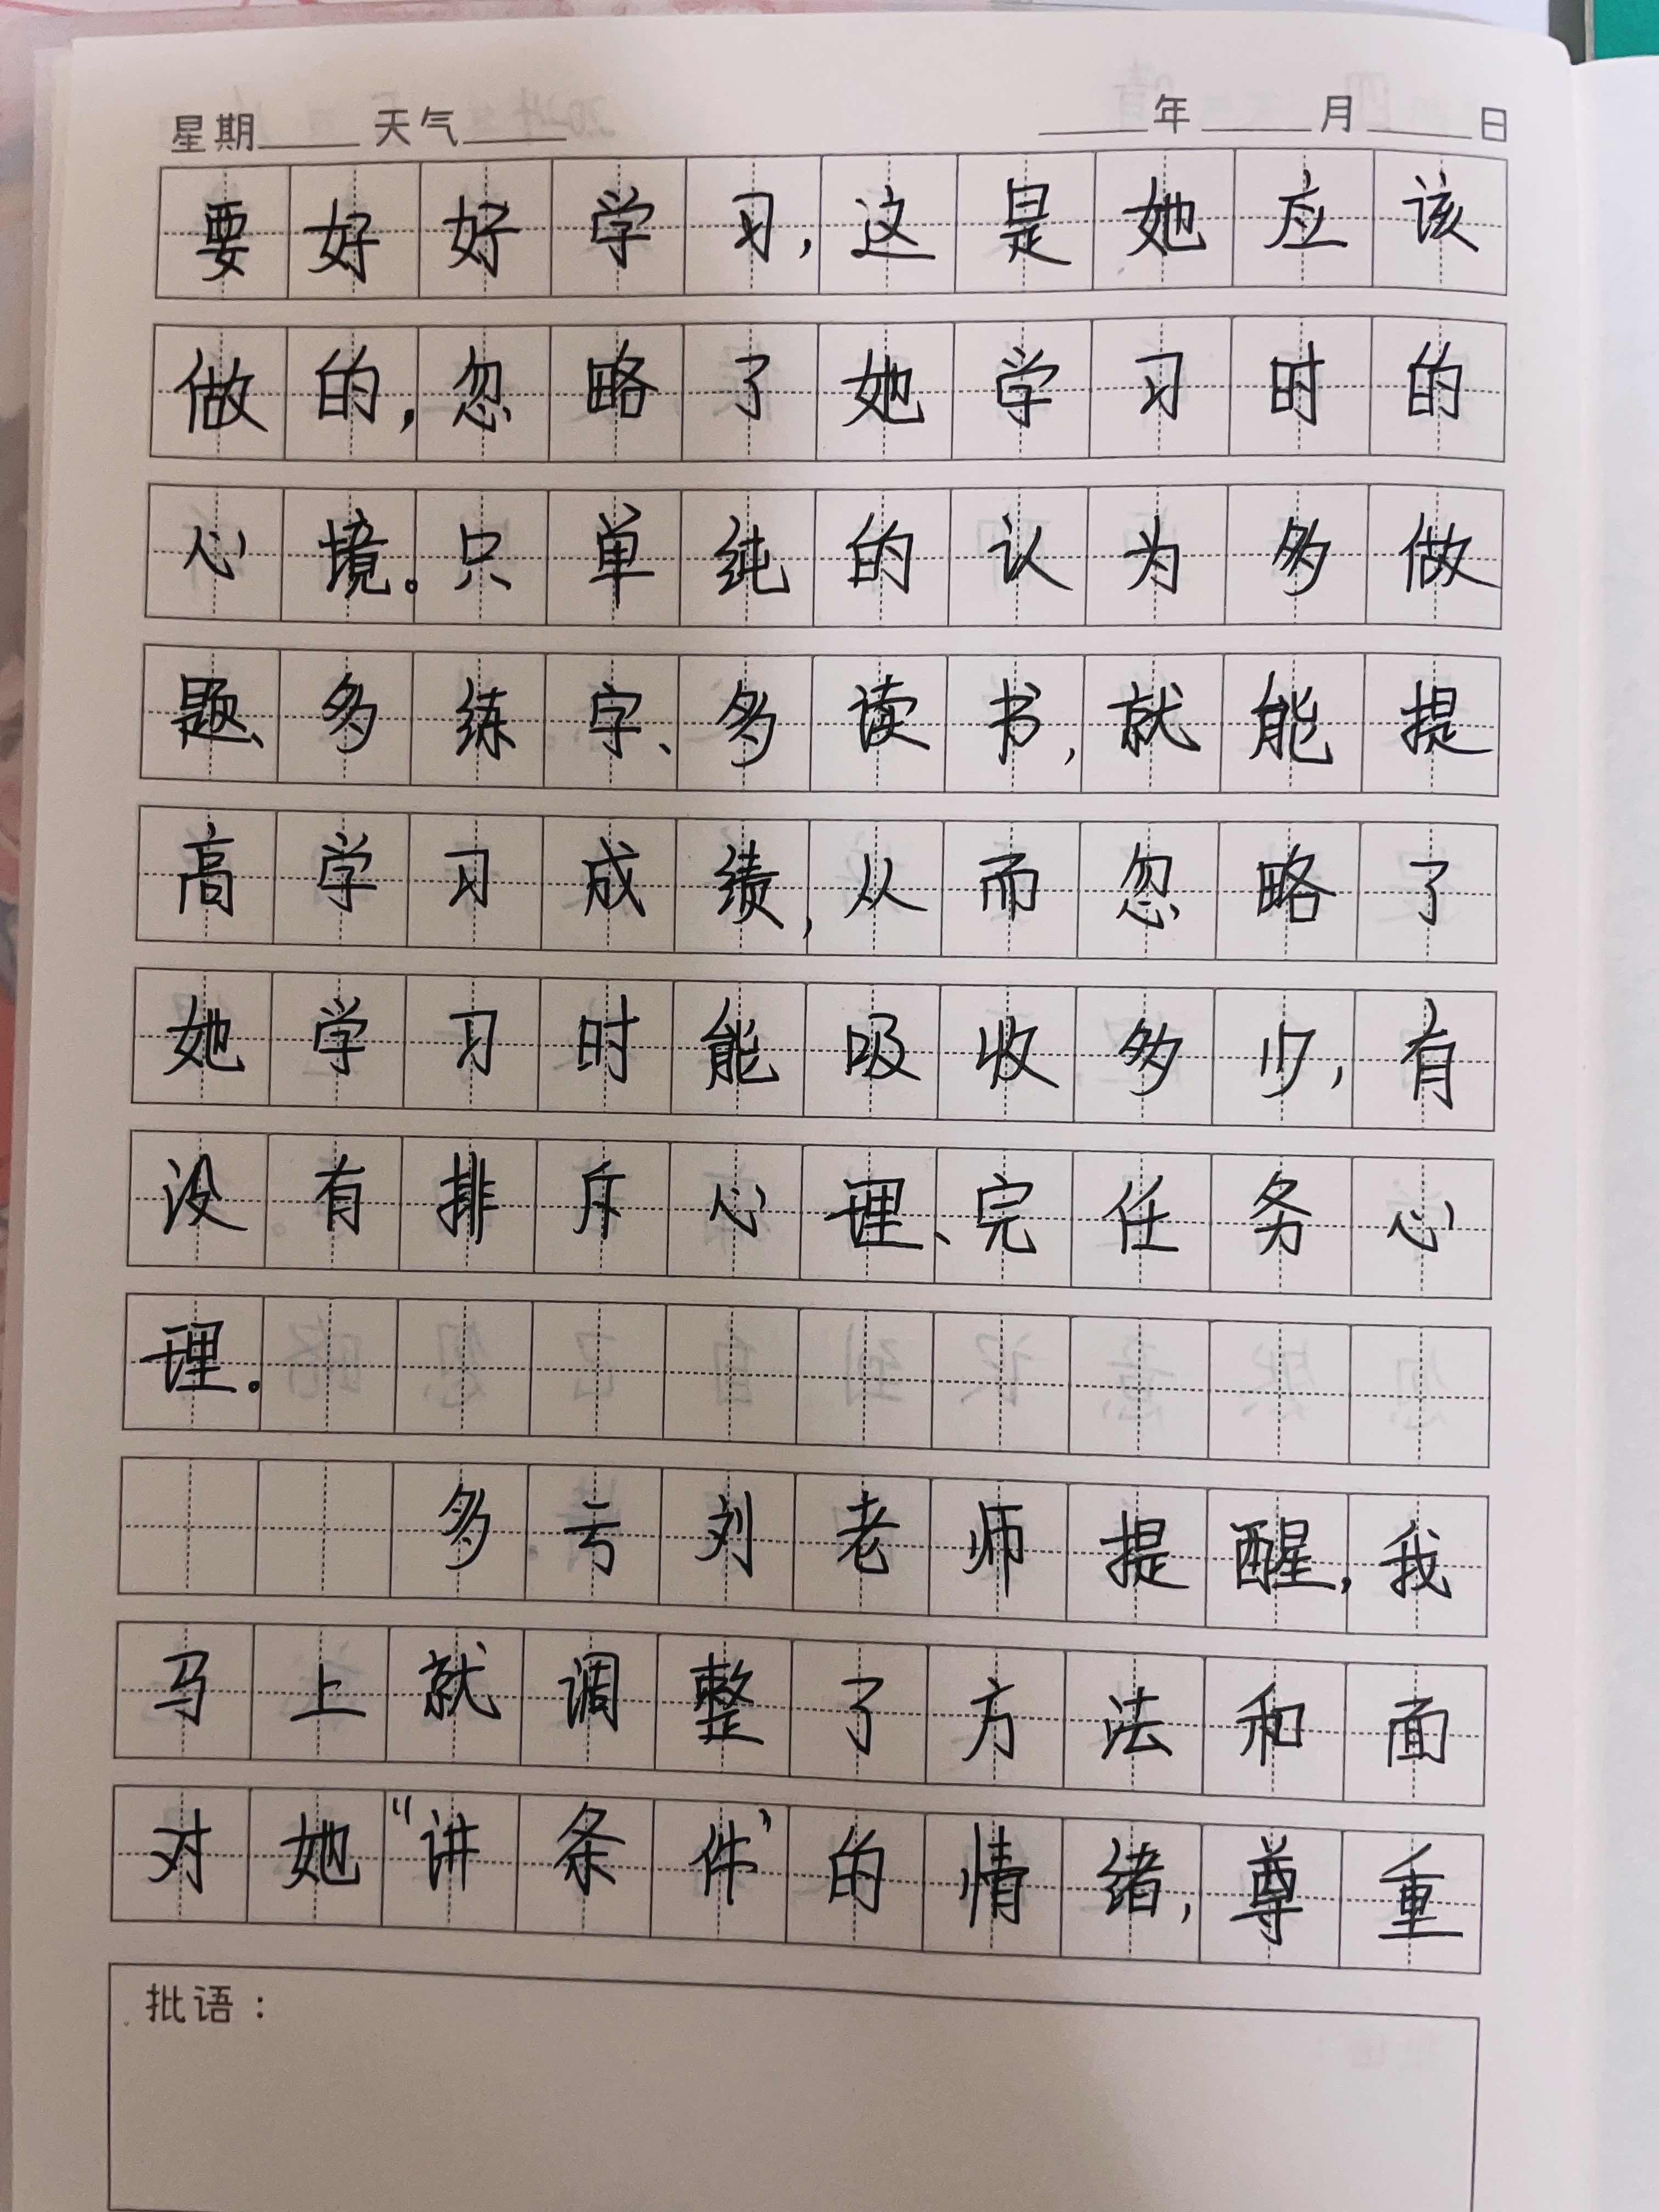 星期 天气 年 月 日
要好好学习,这是她应该
做的,忽略了她学习时的
心境。只单纯的认为多做
题、多练字、多读书,就能提
高学习成绩,从而忽略了
她学习时能吸收多少,有
没有排斥心理、完任务心
理。
多亏刘老师提醒,我
马上就调整了方法和面
对她“讲条件”的情绪,尊重
批语: